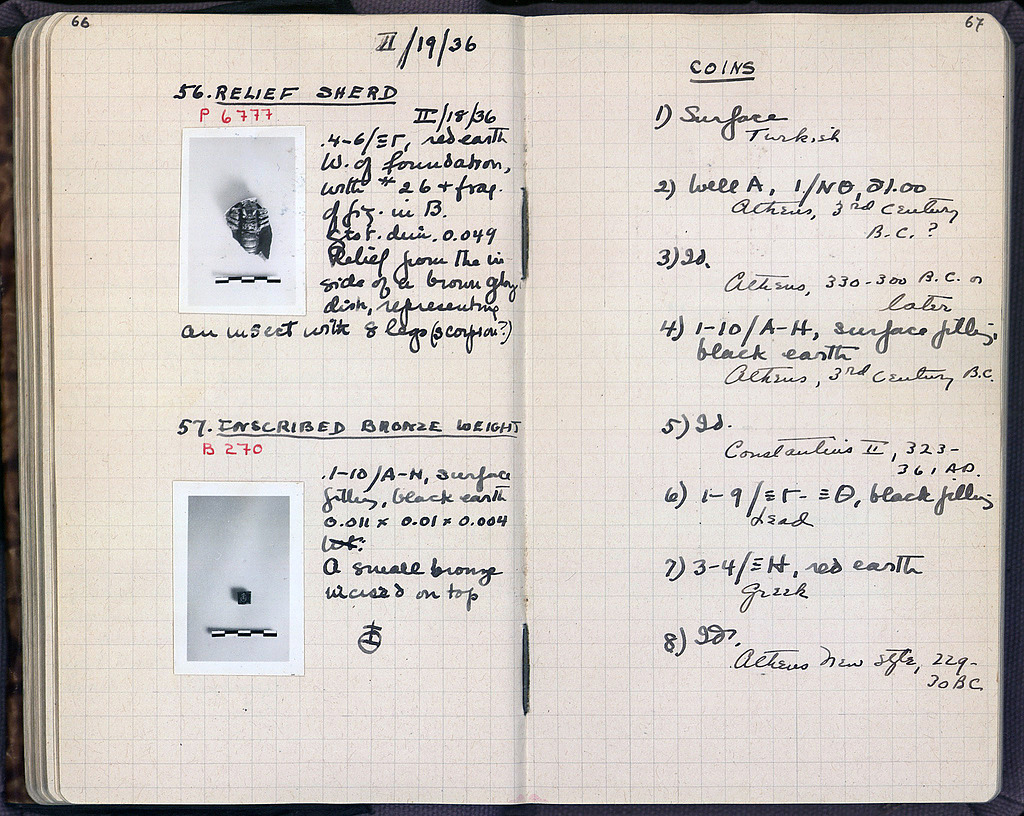 66
II/19/36
56. RELIEF SHERD
P 6777
II/18/36
.4-6/ΞΓ, red earth
W. of foundation,
with #26 + frag.
of fig. in B.
Gr. dim. 0.049
Relief from the in-
side of a brown glaz
dish, representing
an insect with 8 legs (scorpion?)
57. INSCRIBED BRONZE WEIGHT
B 270
.1-10/A-H, surface
filling, black earth
0.011 x 0.01 x 0.004
A small bronze
incised on top
67
COINS
1) Surface
Turkish
2) Well A, 1/ΝΘ, 21.00
Athens, 3rd century
B.C.?
3) Id.
Athens, 330-300 B.C. or
later
4) 1-10/A-H, surface filling,
black earth
Athens, 3rd century B.C.
5) Id.
Constantius II, 323-
361 A.D.
6) 1-9/ΞΓ-ΞΘ, black filling
Lead
7) 3-4/ΞΗ, red earth
Greek
8) Id.
Athens New style, 229-
30 BC